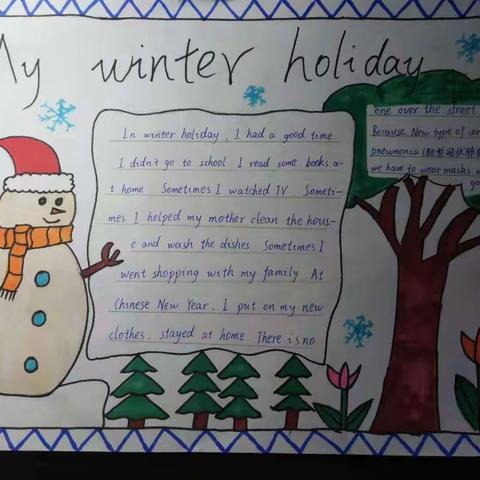 My winter holiday
In winter holiday, I had a good time
I didn't go to school I read some books a-
t home Sometimes I watched TV Someti-
mes I helped my mother clean the hous-
e and wash the dishes. Sometimes I
went shopping with my family. At
Chinese New Year, I put on my new
clothes, stayed at home. There is no
one over the street
Because New type of
pneumonia (新型冠状
we have to wear masks